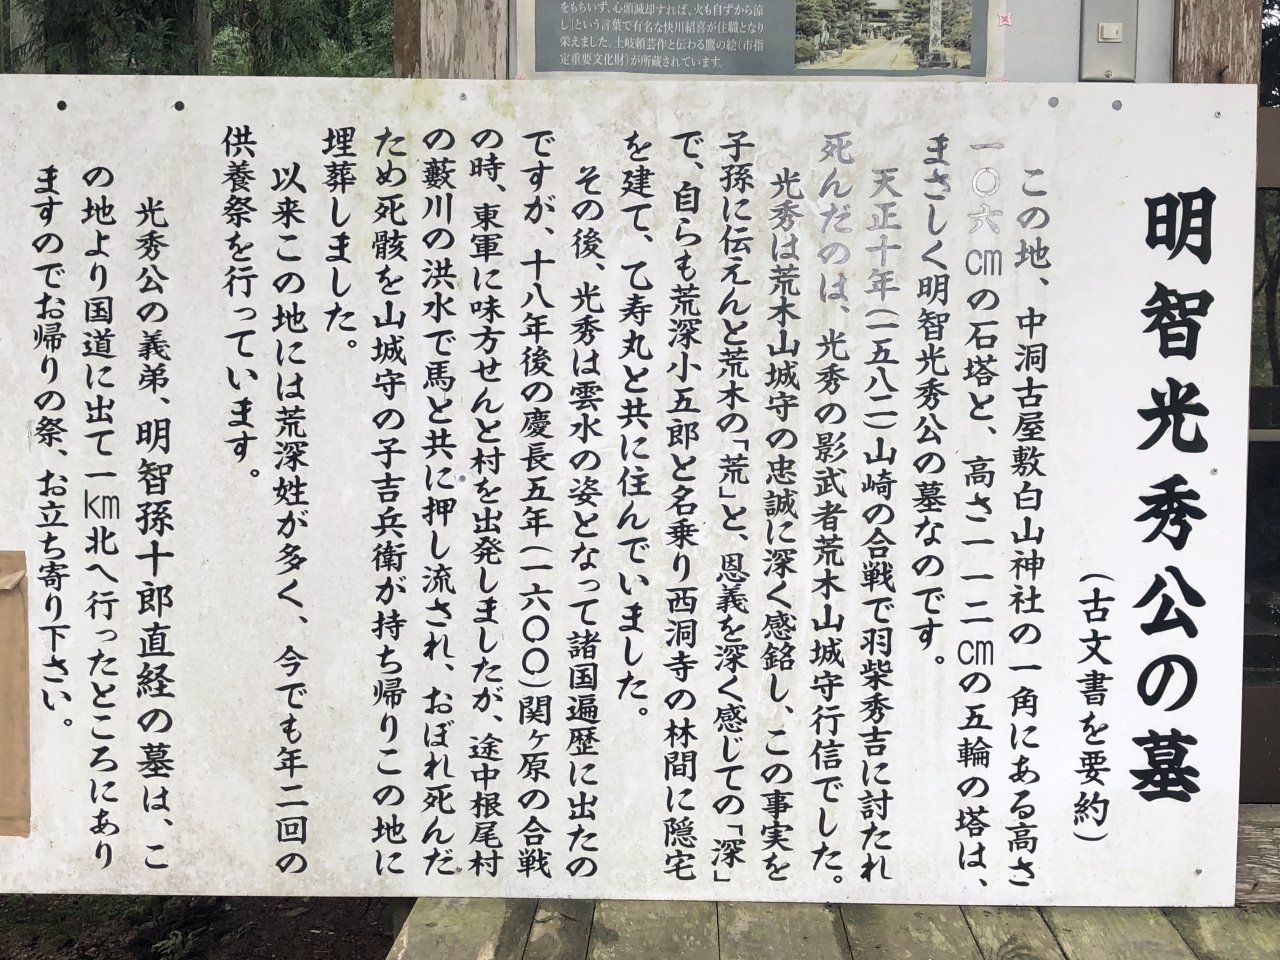 をもちいず、心頭滅却すれば、火も自ずから涼
し」という言葉で有名な快川紹喜が住職となり
栄えました。土岐頼芸作と伝わる鷹の絵(市指
定重要文化財)が所蔵されています。
明智光秀公の墓
(古文書を要約)
この地、中洞古屋敷白山神社の一角にある高さ
一〇六cmの石塔と、高さ一一二cmの五輪の塔は、
まさしく明智光秀公の墓なのです。
天正十年(一五八二)山崎の合戦で羽柴秀吉に討たれ
死んだのは、光秀の影武者荒木山城守行信でした。
光秀は荒木山城守の忠誠に深く感銘し、この事実を
子孫に伝えんと荒木の「荒」と、恩義を深く感じての「深」
で、自らも荒深小五郎と名乗り西洞寺の林間に隠宅
を建て、乙寿丸と共に住んでいました。
その後、光秀は雲水の姿となって諸国遍歴に出たの
ですが、十八年後の慶長五年(一六〇〇)関ヶ原の合戦
の時、東軍に味方せんと村を出発しましたが、途中根尾村
の藪川の洪水で馬と共に押し流され、おぼれ死んだ
ため死骸を山城守の子吉兵衛が持ち帰りこの地に
埋葬しました。
以来この地には荒深姓が多く、今でも年二回の
供養祭を行っています。
光秀公の義弟、明智孫十郎直経の墓は、こ
の地より国道に出て一km北へ行ったところにあり
ますのでお帰りの祭、お立ち寄り下さい。